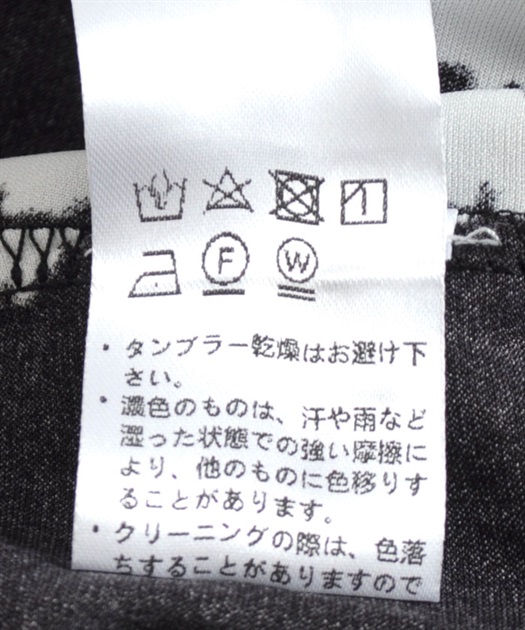 F W
・タンブラー乾燥はお避け下
さい。
・濃色のものは、汗や雨など
湿った状態での強い摩擦に
より、他のものに色移りす
ることがあります。
・クリーニングの際は、色落
ちすることがありますので